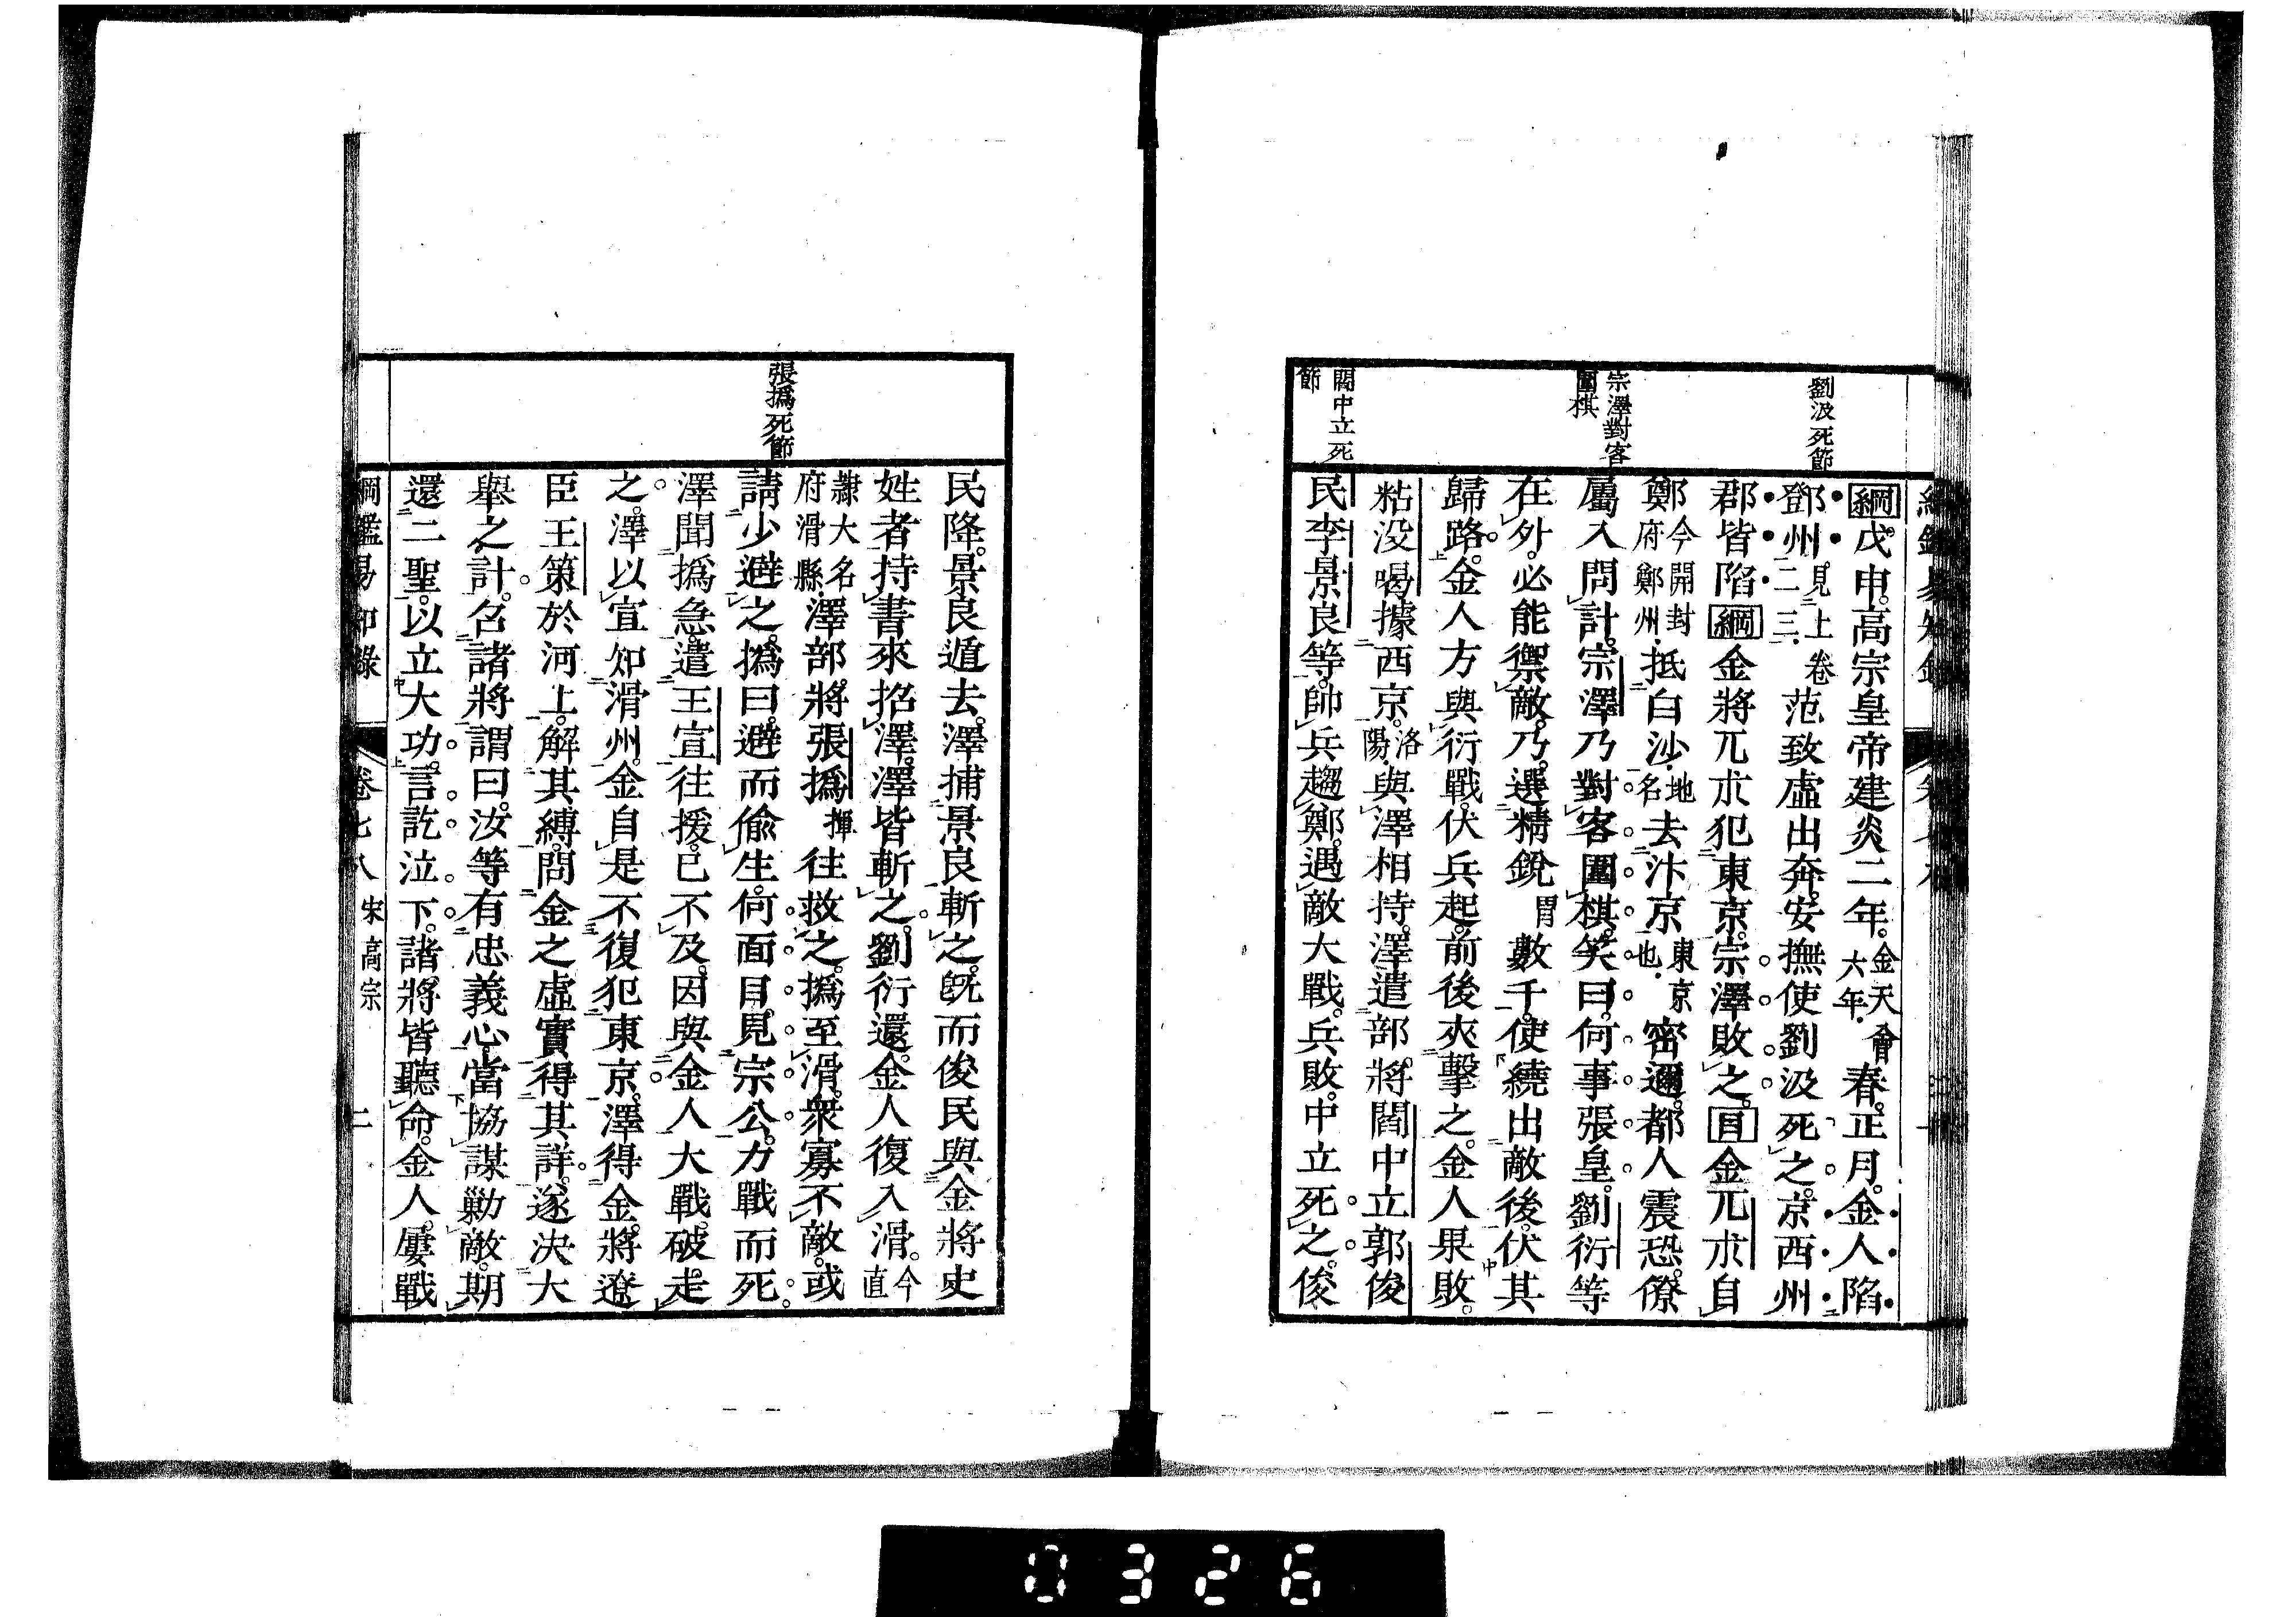 劉汲死節
宗澤對客
圍棋
閻中立死
節
綱戊申。高宗皇帝建炎二年。金天會六年。春。正月。金人陷
鄧州。見上卷二三。范致虛出奔。安撫使劉汲死之。京西州
郡皆陷綱金將兀朮犯東京。宗澤敗之。目金兀朮自
鄭今開封府鄭州抵白沙地名去汴京東京也密邇。都人震恐。僚
屬入問計。宗澤乃對客圍棋。笑曰。何事張皇。劉衍等
在外。必能禦敵。乃選精銳數千。使繞出敵後。伏其
歸路。金人方與衍戰。伏兵起。前後夾擊之。金人果敗。
粘没喝據西京。洛陽與澤相持。澤遣部將閻中立郭俊
民李景良等。帥兵趨鄭。遇敵大戰。兵敗。中立死之。俊
張撝死節
民降。景良遁去。澤捕景良斬之。既而俊民與金將史
姓者持書來招澤。澤皆斬之。劉衍還。金人復入滑。今直
隸大名府滑縣澤部將張撝揮往救之。撝至滑。衆寡不敵。或
請少避之。撝曰。避而偸生。何面目見宗公。力戰而死。
澤聞撝急。遣王宣往援。已不及。因與金人大戰。破走
之。澤以宣知滑州。金自是不復犯東京。澤得金將遼
臣王策於河上。解其縛。問金之虛實得其詳。遂決大
舉之計。召諸將謂曰。汝等有忠義心。當協謀勦敵。期
還二聖。以立大功。言訖泣下。諸將皆聽命。金人屢戰
綱鑑易知錄 卷七八 宋高宗 二
0326